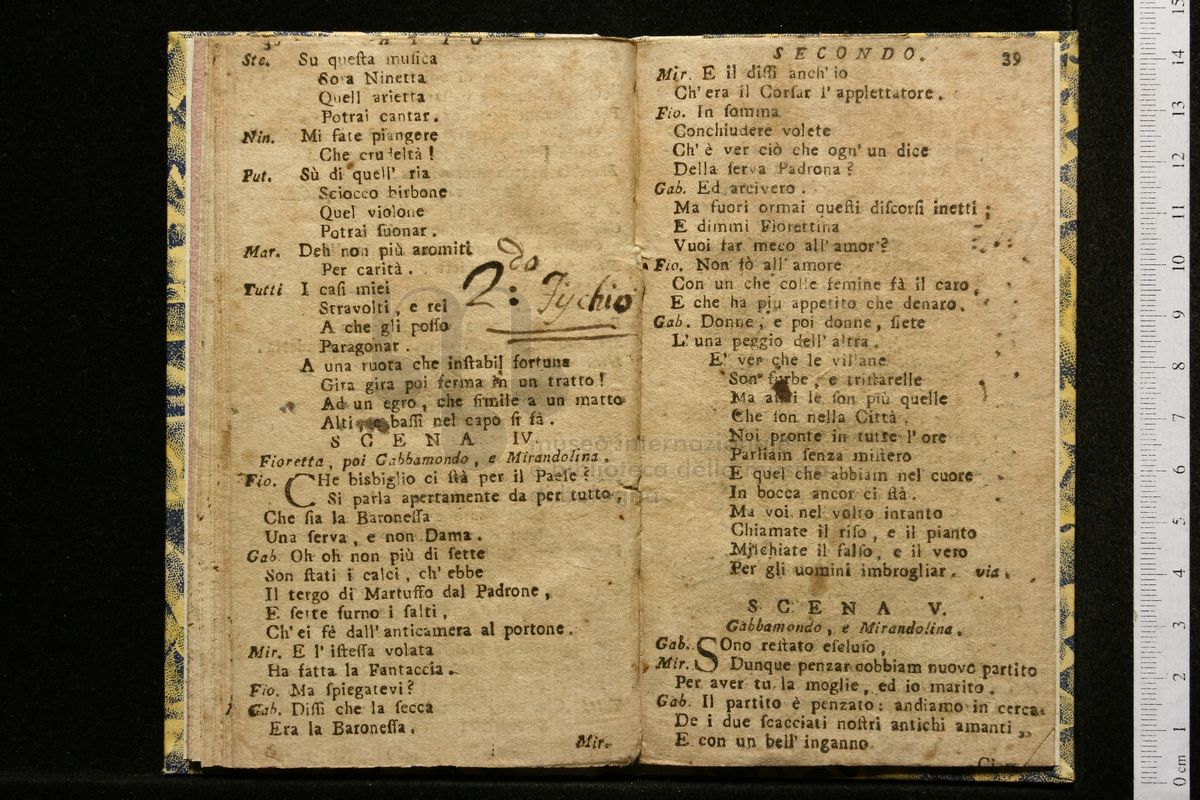 ATTO
Ste. Su questa musica
Sora Ninetta
Quell arietta
Potrai cantar.
Nin. Mi fate piangere
Che crudeltà!
Put. Sù di quell' aria
Sciocco birbone
Quel violone
Potrai suonar.
Mar. Deh non più aromiti
Per carità.
Tutti I casi miei
Stravolti, e rei
A che gli posso
Paragonar.
A una ruota che instabil fortuna
Gira gira poi ferma in un tratto!
Ad un egro, che simile a un matto
Alti e bassi nel capo si fà.
2:do Fischio
SCENA IV.
Fioretta, poi Gabbamondo, e Mirandolina.
Fio. CHe bisbiglio ci stà per il Paese?
Si parla apertamente da per tutto,
Che sia la Baronessa
Una serva, e non Dama.
Gab. Oh oh non più di sette
Son stati i calci, ch' ebbe
Il tergo di Martuffo dal Padrone,
E sette furno i salti,
Ch' ei fè dall' anticamera al portone.
Mir. E l' istessa volata
Ha fatta la Fantaccia.
Fio. Ma spiegatevi?
Gab. Dissi che la secca
Era la Baronessa.
Mir.
SECONDO. 39
Mir. E il dissi anch' io
Ch' era il Corsar l' applettatore.
Fio. In somma
Conchiudere volete
Ch' è ver ciò che ogn' un dice
Della serva Padrona?
Gab. Ed arcivero.
Ma fuori ormai questi discorsi inetti;
E dimmi Fiorettina
Vuoi far meco all' amor?
Fio. Non fò all' amore
Con un che colle femine fà il caro,
E che ha più appetito che denaro.
Gab. Donne, e poi donne, siete
L' una peggio dell' altra.
E' ver che le villane
Son furbe, e tristarelle
Ma assai le son più quelle
Che son nella Città.
Noi pronte in tutte l' ore
Parliam senza mistero
E quel che abbiam nel cuore
In bocca ancor ci stà.
Ma voi nel volto intanto
Chiamate il riso, e il pianto
Mischiate il falso, e il vero
Per gli uomini imbrogliar. via.
SCENA V.
Gabbamondo, e Mirandolina.
Gab. SOno restato escluso,
Mir. Dunque penzar dobbiam nuovo partito
Per aver tu la moglie, ed io marito.
Gab. Il partito è penzato: andiamo in cerca
De i due scacciati nostri antichi amanti,
E con un bell' inganno
museo internazionale
biblioteca della musica